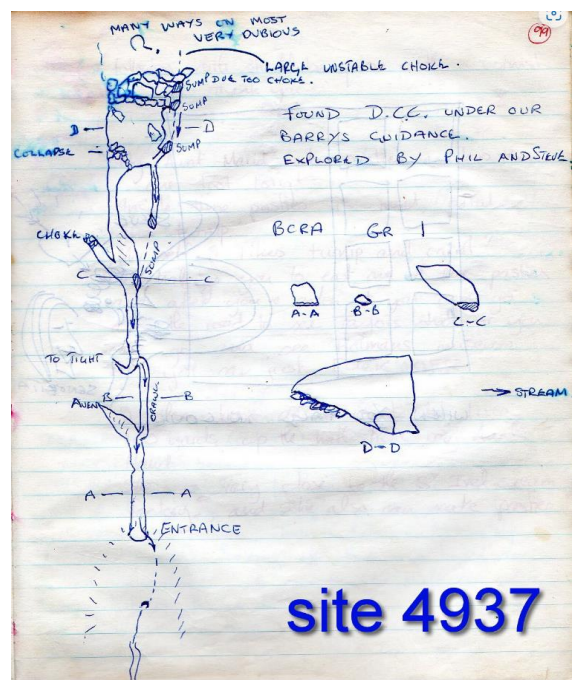 MANY WAYS ON MOST
VERY DUBIOUS
?
99
LARGE UNSTABLE CHOKE.
SUMP DUE TOO CHOKE.
SUMP
FOUND D.C.C. UNDER OUR
BARRYS GUIDANCE.
EXPLORED BY PHIL AND STEVE
D D
SUMP
COLLAPSE
BCRA GR 1
CHOKE
SUMP
C C
A-A
B-B
C-C
TO TIGHT
AVEN
B B
CRAWL
STREAM
D-D
A A
ENTRANCE
site 4937